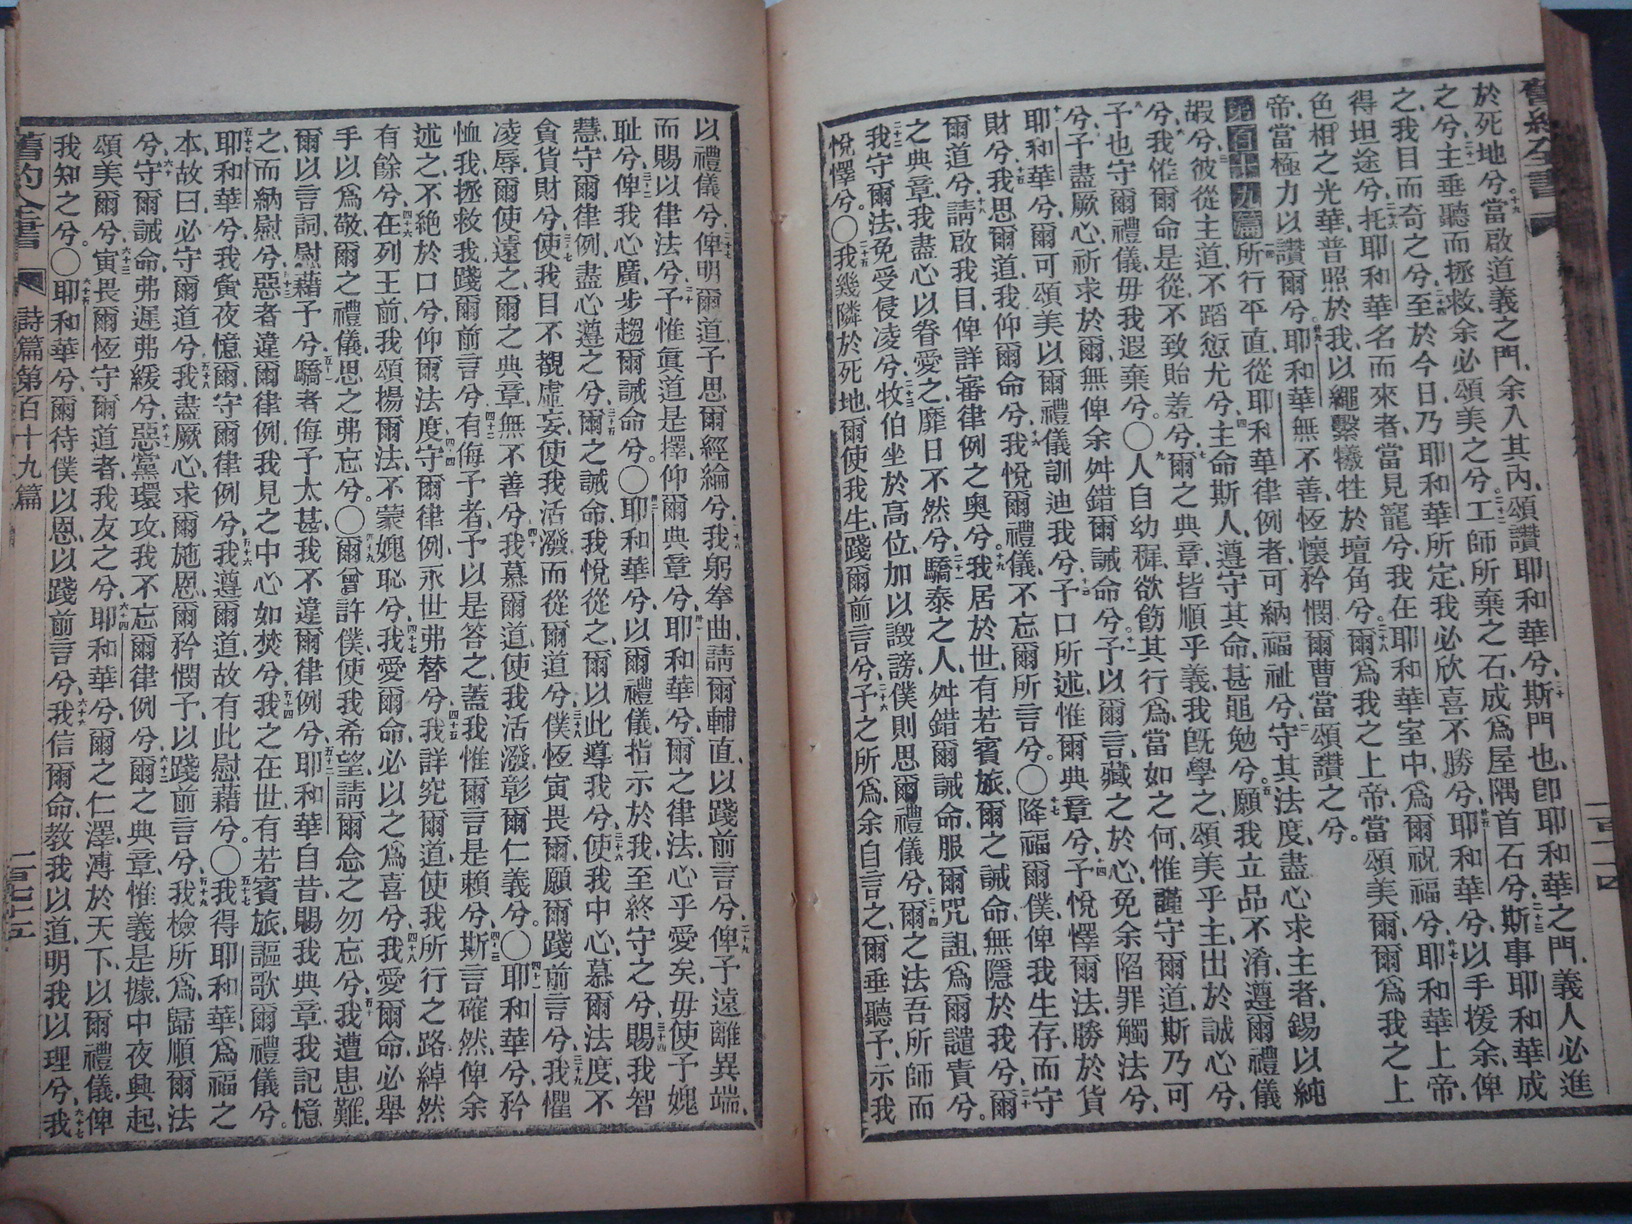 於死地兮十九當啟道義之門余入其內頌讚耶和華兮二十斯門也卽耶和華之門義人必進
之兮二十一主垂聽而拯救余必頌美之兮二十二工師所棄之石成爲屋隅首石兮二十三斯事耶和華成
之我目而奇之兮二十四至於今日乃耶和華所定我必欣喜不勝兮二十五耶和華兮以手援余俾
得坦途兮二十六托耶和華名而來者當見寵兮我在耶和華室中爲爾祝福兮二十七耶和華上帝
色相之光華普照於我以繩繫犧牲於壇角兮二十八爾爲我之上帝當頌美爾爾爲我之上
帝當極力以讚爾兮二十九耶和華無不善恆懷矜憫爾曹當頌讚之兮
第百十九篇一所行平直從耶和華律例者可納福祉兮二守其法度盡心求主者錫以純
嘏兮三彼從主道不蹈愆尤兮四主命斯人遵守其命甚黽勉兮五願我立品不淆遵爾禮儀
兮六我惟爾命是從不致貽羞兮七爾之典章皆順乎義我旣學之頌美乎主出於誠心兮
八予也守爾禮儀毋我遐棄兮〇九人自幼穉欲飭其行爲當如之何惟謹守爾道斯乃可
兮十予盡厥心祈求於爾無俾余舛錯爾誡命兮十一予以爾言藏之於心免余陷罪觸法兮
十二耶和華兮爾可頌美以爾禮儀訓迪我兮十三予口所述惟爾典章兮十四予悅懌爾法勝於貨
財兮十五我思爾道我仰爾命兮十六我悅爾禮儀不忘爾所言兮〇十七降福爾僕俾我生存而守
爾道兮十八請啟我目俾詳審律例之奧兮十九我居於世有若賓旅爾之誡命無隱於我兮二十爾
之典章我盡心以眷愛之靡日不然兮二十一驕泰之人舛錯爾誡命服爾咒詛爲爾譴責兮
二十二我守爾法免受侵凌兮二十三牧伯坐於高位加以譭謗僕則思爾禮儀兮二十四爾之法吾所師而
悅懌兮〇二十五我幾隣於死地爾使我生踐爾前言兮二十六予之所爲余自言之爾垂聽予示我
以禮儀兮二十七俾明爾道予思爾經綸兮二十八我躬拳曲請爾輔直以踐前言兮二十九俾予遠離異端
而賜以律法兮三十予惟眞道是擇仰爾典章兮三十一耶和華兮爾之律法心乎愛矣毋使予媿
耻兮三十二俾我心廣步趨爾誡命兮〇三十三耶和華兮以爾禮儀指示於我至終守之兮三十四賜我智
慧守爾律例盡心遵之兮三十五爾之誡命我悅從之爾以此導我兮三十六使我中心慕爾法度不
貪貨財兮三十七使我目不觀虛妄使我活潑而從爾道兮三十八僕恆寅畏爾願爾踐前言兮三十九我懼
凌辱爾使遠之爾之典章無不善兮四十我慕爾道使我活潑彰爾仁義兮〇四十一耶和華兮矜
恤我拯救我踐爾前言兮四十二有侮予者予以是答之蓋我惟爾言是賴兮四十三斯言確然俾余
述之不絕於口兮仰爾法度四十四守爾律例永世弗替兮四十五我詳究爾道使我所行之路綽然
有餘兮四十六在列王前我頌揚爾法不蒙媿恥兮四十七我愛爾命必以之爲喜兮四十八我愛爾命必舉
手以爲敬爾之禮儀思之弗忘兮〇四十九爾曾許僕使我希望請爾念之勿忘兮五十我遭患難
爾以言詞慰藉予兮五十一驕者侮予太甚我不違爾律例兮五十二耶和華自昔賜我典章我記憶
之而納慰兮五十三惡者違爾律例我見之中心如焚兮五十四我之在世有若賓旅謳歌爾禮儀兮
五十五耶和華兮我寅夜憶爾守爾律例兮五十六我遵爾道故有此慰藉兮〇五十七我得耶和華爲福之
本故曰必守爾道兮五十八我盡厥心求爾施恩爾矜憫予以踐前言兮五十九我檢所爲歸順爾法
兮六十守爾誡命弗遲弗緩兮六十一惡黨環攻我不忘爾律例兮六十二爾之典章惟義是據中夜興起
頌美爾兮六十三寅畏爾恆守爾道者我友之兮六十四耶和華兮爾之仁澤溥於天下以爾禮儀俾
我知之兮〇六十五耶和華兮爾待僕以恩以踐前言兮六十六我信爾命教我以道明我以理兮六十七我
舊約全書 詩篇第百十九篇